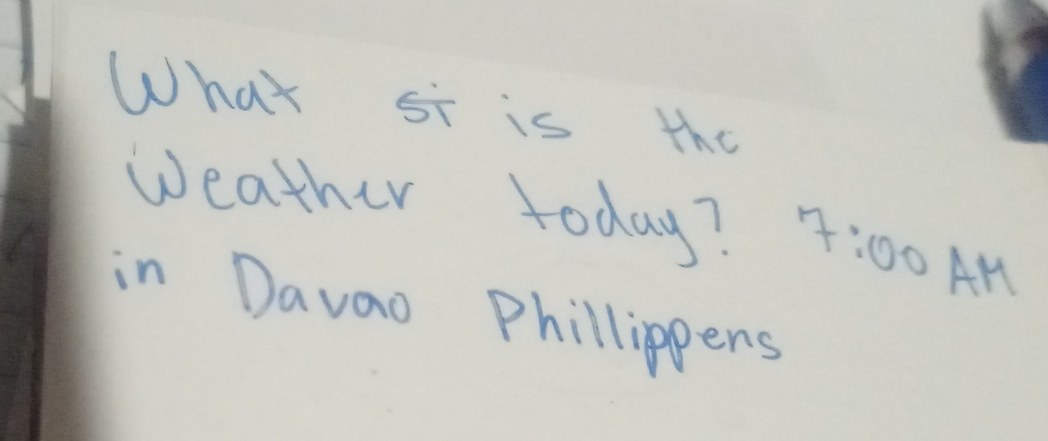 What si is the
Weather today? 7:00 AM
in Davao Phillippens